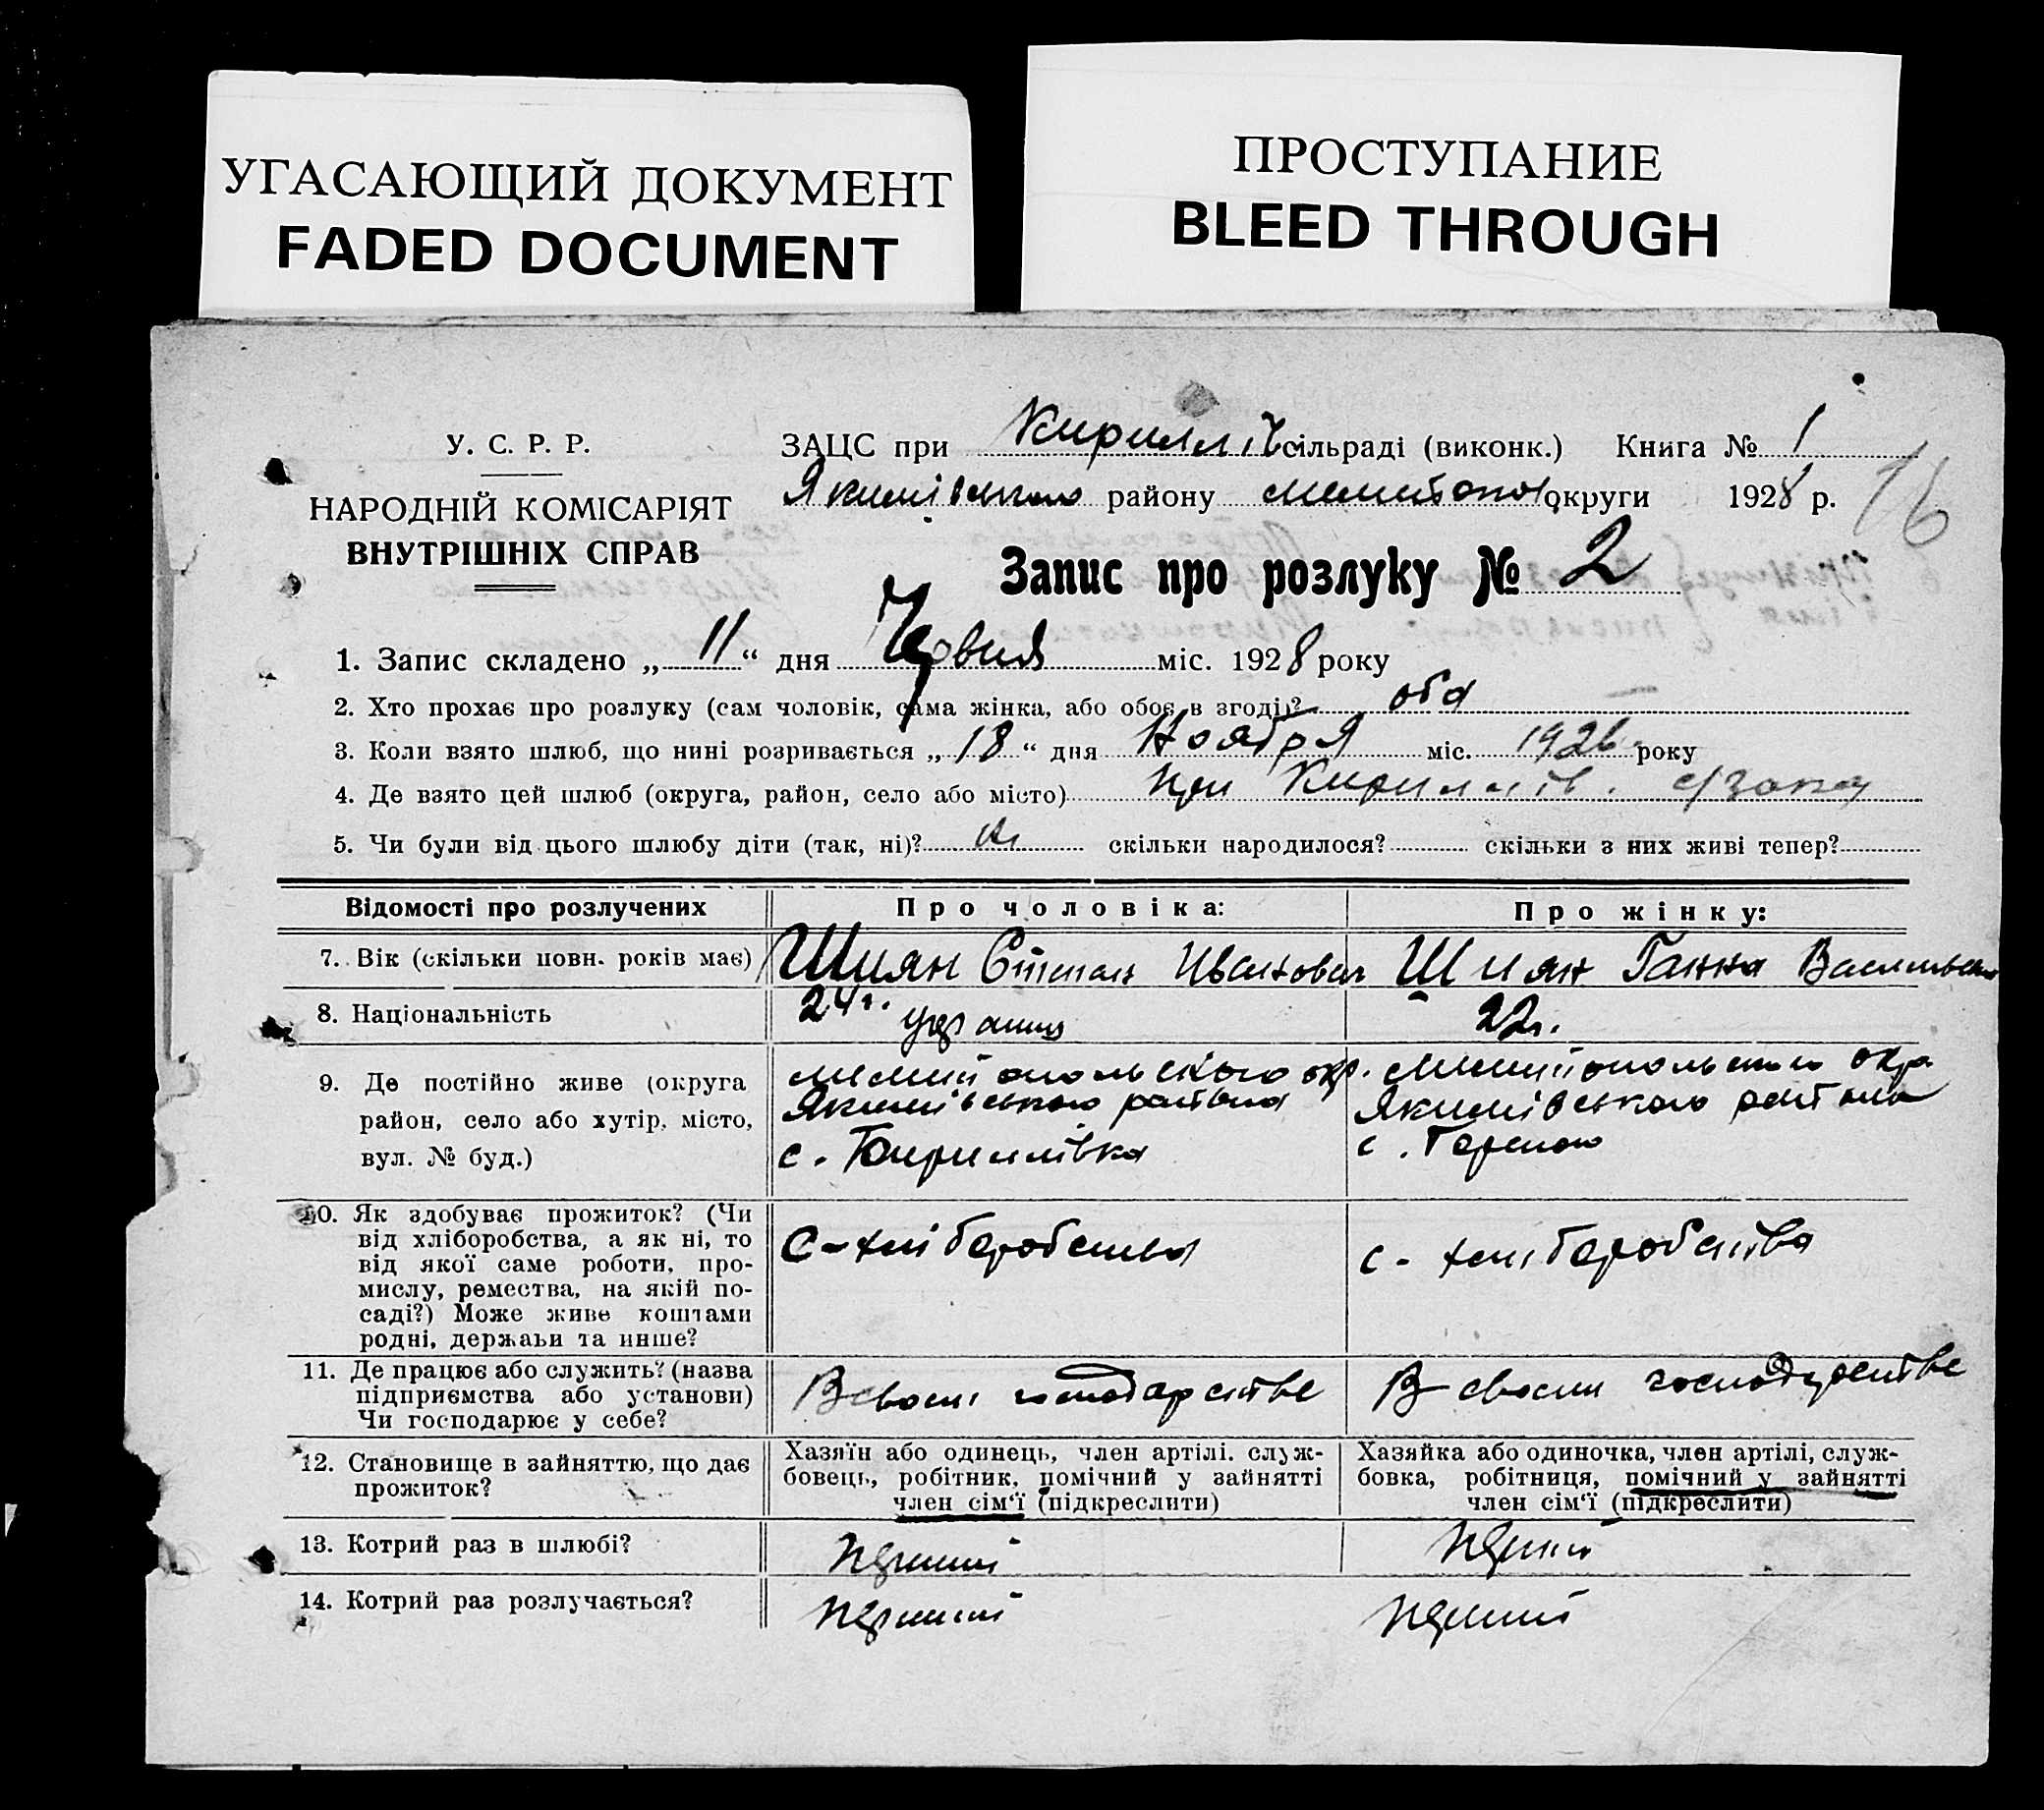 УГАСАЮЩИЙ ДОКУМЕНТ
FADED DOCUMENT
ПРОСТУПАНИЕ
BLEED THROUGH
У. С. Р. Р.
НАРОДНІЙ КОМІСАРІЯТ
ВНУТРІШНІХ СПРАВ
ЗАЦС при Кириллів сільраді (виконк.) Книга № 1
Якимівського району Мелитопол округи 1928 р.
16
Запис про розлуку № 2
1. Запис складено „ 11 “ дня Червня міс. 1928 року
2. Хто прохає про розлуку (сам чоловік, сама жінка, або обоє в згоді)? оба
3. Коли взято шлюб, що нині розривається „ 18 “ дня Ноября міс. 1926 року
4. Де взято цей шлюб (округа, район, село або місто) при Кириллів.
5. Чи були від цього шлюбу діти (так, ні)? скільки народилося? скільки з них живі тепер?
Відомості про розлучених
Про чоловіка:
Про жінку:
7. Вік (скільки повн. років має)
Шиян Степан Иванович
Шиян Ганна Васильевна
8. Національність
24 г. украинц
22 г.
9. Де постійно живе (округа
район, село або хутір, місто,
вул. № буд.)
Мелитопольского окр.
Якимівського района
с. Кириллівка
Мелитопольского окр.
Якимівського района
с.
10. Як здобуває прожиток? (Чи
від хліборобства, а як ні, то
від якої саме роботи, про-
мислу, ремества, на якій по-
саді?) Може живе коштами
родні, держави та инше?
С-хліборобства
с-хліборобства
11. Де працює або служить? (назва
підприємства або установи)
Чи господарює у себе?
В своем господарстве
В своем господарстве
12. Становище в зайняттю, що дає
прожиток?
Хазяїн або одинець, член артілі. служ-
бовець, робітник, помічний у зайнятті
член сім‘ї (підкреслити)
Хазяйка або одиночка, член артілі, служ-
бовка, робітниця, помічний у зайнятті
член сім‘ї (підкреслити)
13. Котрий раз в шлюбі?
перший
перший
14. Котрий раз розлучається?
перший
перший